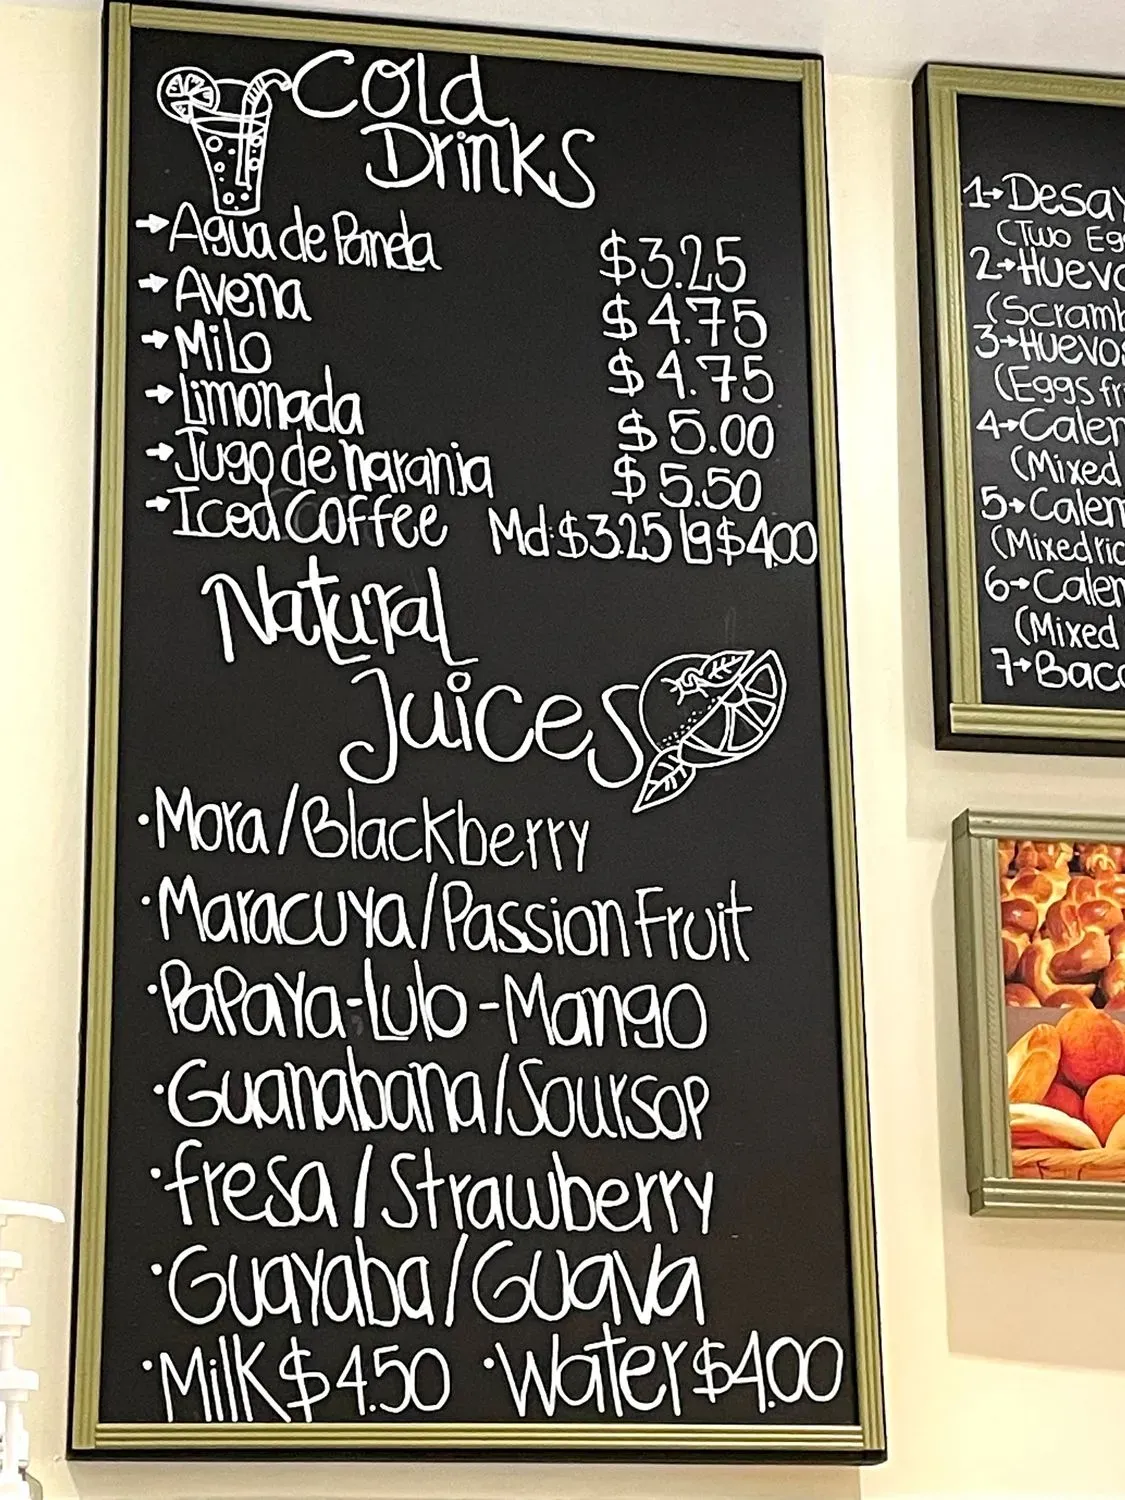 Cold
Drinks
→Agua de Panela $3.25
→Avena $4.75
→Milo $4.75
→Limonada $5.00
→Jugo de naranja $5.50
→Iced Coffee Md:$3.25 lg $4.00
Natural
Juices
·Mora/Blackberry
·Maracuya/Passion Fruit
·Papaya-Lulo-Mango
·Guanabana/Soursop
·fresa/Strawberry
·Guayaba/Guava
·Milk $4.50 ·Water $4.00
1→Desay
(Two Eg
2→Huevo
(Scramb
3→Huevos
(Eggs fr
4→Calen
(Mixed
5→Calen
(Mixed ric
6→Calen
(Mixed
7→Baco